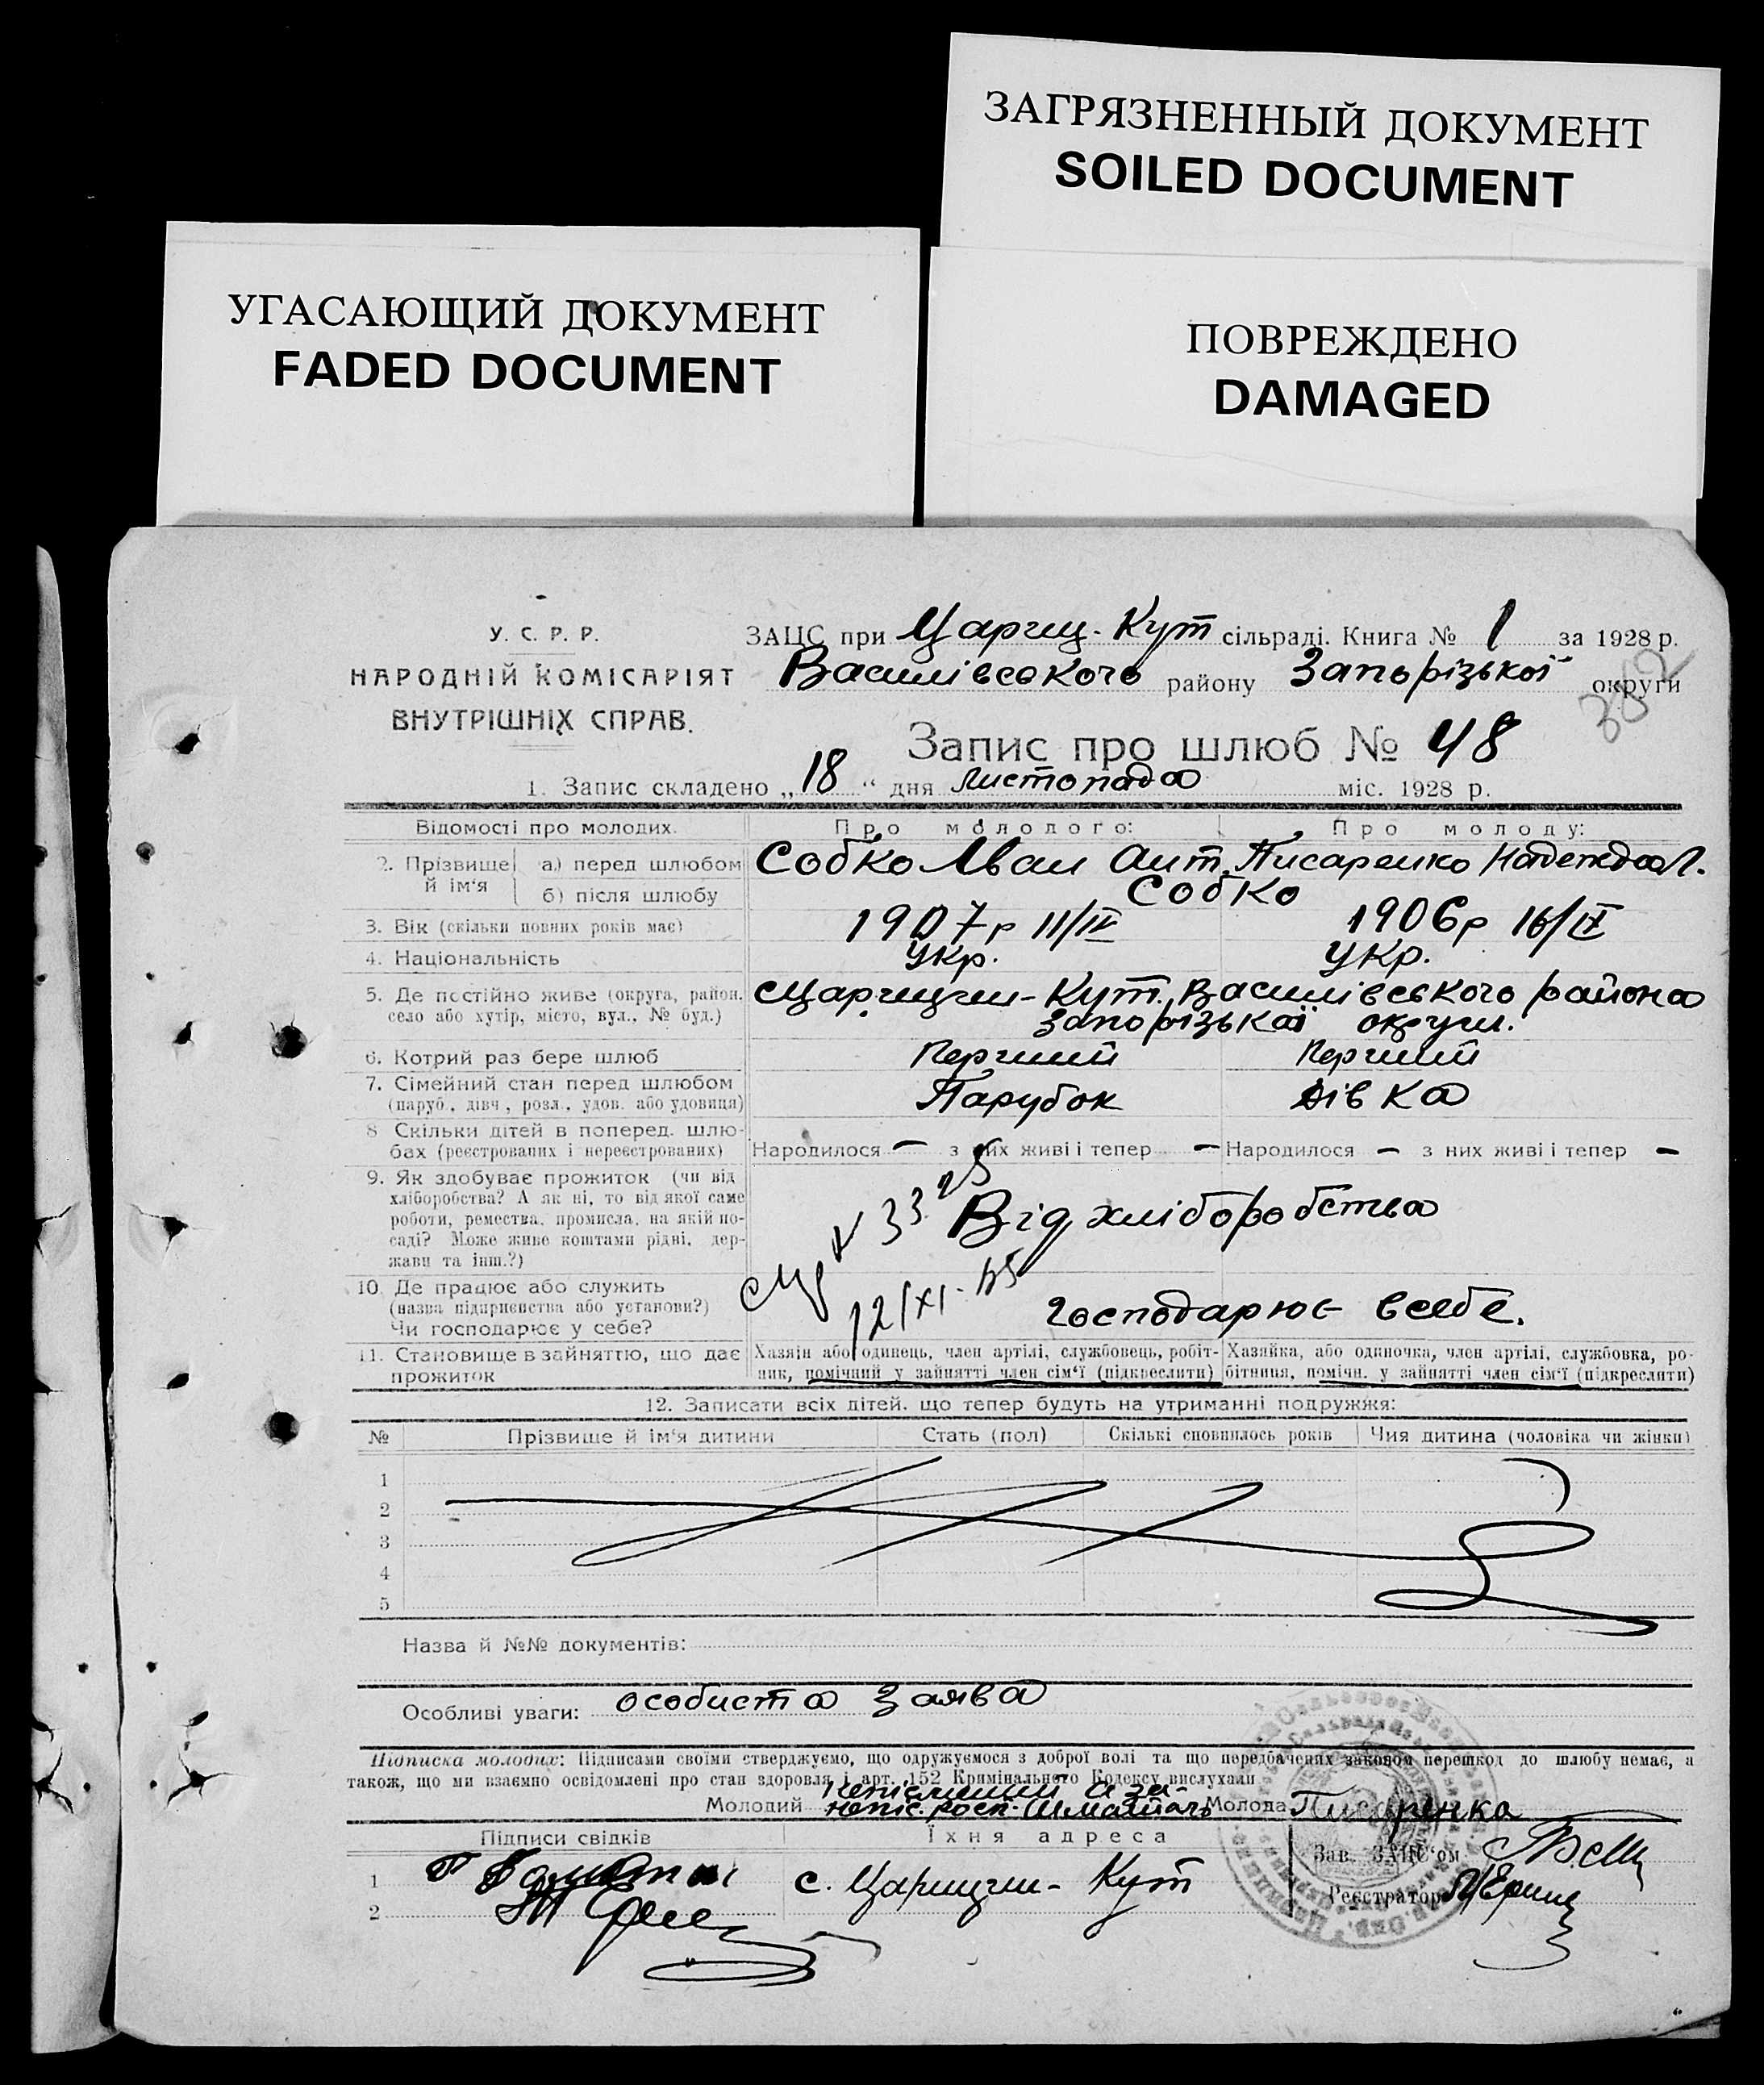 ЗАГРЯЗНЕННЫЙ ДОКУМЕНТ
SOILED DOCUMENT
УГАСАЮЩИЙ ДОКУМЕНТ
FADED DOCUMENT
ПОВРЕЖДЕНО
DAMAGED
У. С. Р. Р.
НАРОДНІЙ КОМІСАРІЯТ
ВНУТРІШНІХ СПРАВ.
ЗАЦС при Цариц-Кут сільраді. Книга № 1 за 1928 р.
Василівського району Запорізької округи
382
Запис про шлюб № 48
1. Запис складено „18“ дня листопада міс. 1928 р.
Відомості про молодих. Про молодого: Про молоду:
2. Прізвище й ім'я а) перед шлюбом Собко Іван Ант. Писаренко Надежда Л.
б) після шлюбу Собко
3. Вік (скільки повних років має) 1907р 11/IV 1906р 16/IX
4. Національність Укр. Укр.
5. Де постійно живе (округа, район, село або хутір, місто, вул., № буд.) Царицин-Кут, Василівського района
Запорізької округи.
6. Котрий раз бере шлюб Перший Перший
7. Сімейний стан перед шлюбом (паруб., дівч., розл., удов. або удовиця) Парубок Дівка
8 Скільки дітей в поперед. шлюбах (реєстрованих і нереєстрованих) Народилося — з них живі і тепер — Народилося — з них живі і тепер —
9. Як здобуває прожиток (чи від хліборобства? А як ні, то від якої саме роботи, ремества, промисла, на якій посаді? Може живе коштами рідні, держави та інш.?) Від хліборобства
12/XI-
10. Де працює або служить (назва підприємства або установи?) Чи господарює у себе? Господарює в себе.
11. Становище в зайняттю, що дає прожиток Хазяїн або одинець, член артілі, службовець, робітник, помічний у зайнятті член сім'ї (підкреслити) Хазяйка, або одиночка, член артілі, службовка, робітниця, помічн. у зайнятті член сім'ї (підкреслити)
12. Записати всіх дітей. що тепер будуть на утриманні подружжя:
№ Прізвище й ім'я дитини Стать (пол) Скількі сповнилось років Чия дитина (чоловіка чи жінки)
1
2
3
4
5
Назва й №№ документів:
Особливі уваги: особиста заява
Підписка молодих: Підписами своїми стверджуємо, що одружуємося з доброї волі та що передбачених законом перешкод до шлюбу немає, а
також, що ми взаємно освідомлені про стан здоровля і арт. 152 Кримінального Кодексу вислухали
Молодий Молода Писаренка
Підписи свідків Їхня адреса
Зав. ЗАЦС'ом
1 с. Царицин-Кут
Реєстратор
2